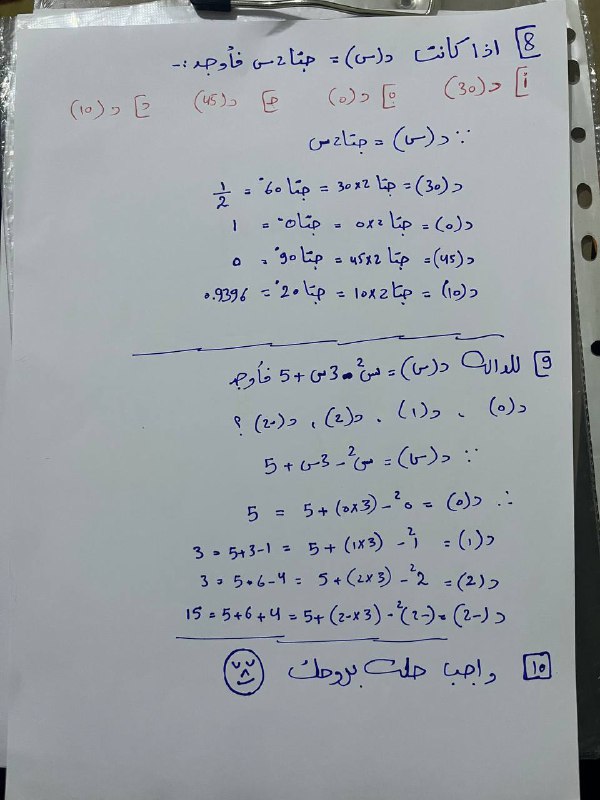 8] اذا كانت د(س) = جتا2س فأوجد :-
أ] د(30) ب] د(0) ج] د(45) د] د(10)
∵ د(س) = جتا2س
د(30) = جتا 2×30 = جتا 60° = 1/2
د(0) = جتا 2×0 = جتا 0° = 1
د(45) = جتا 2×45 = جتا 90° = 0
د(10) = جتا 2×10 = جتا 20° = 0.9396
9] للدالة د(س) = س² - 3س + 5 فأوجد
د(0) ، د(1) ، د(2) ، د(-2) ؟
∵ د(س) = س² - 3س + 5
∴ د(0) = 0² - (3×0) + 5 = 5
د(1) = 1² - (3×1) + 5 = 1-3+5 = 3
د(2) = 2² - (3×2) + 5 = 4-6+5 = 3
د(-2) = (-2)² - (3×-2) + 5 = 4+6+5 = 15
10 واجب حله بروحك